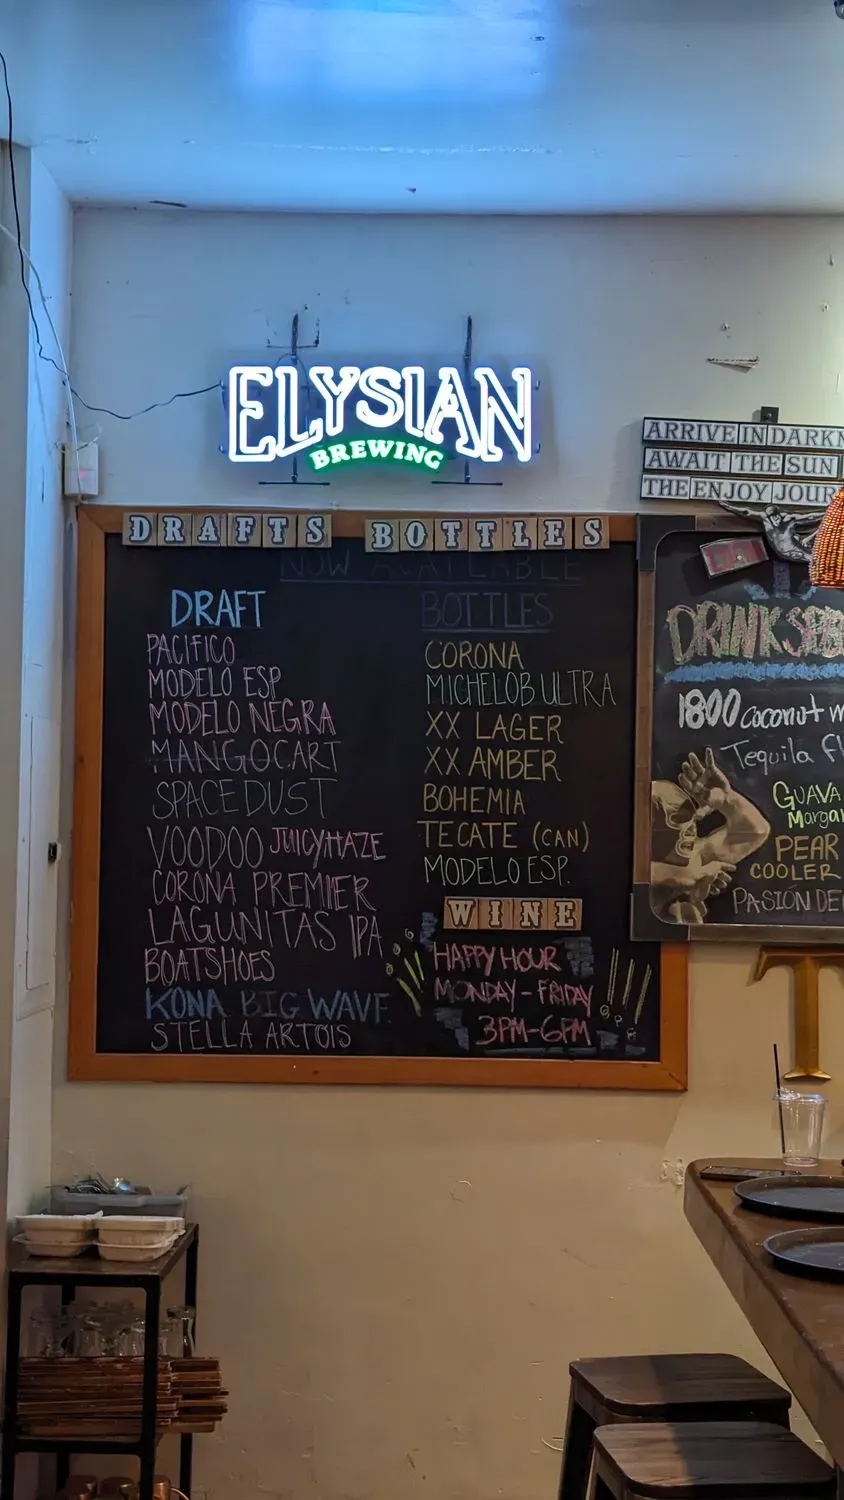 ELYSIAN
BREWING
ARRIVE IN DARKN
AWAIT THE SUN
THE ENJOY JOUR
DRAFTS BOTTLES
NOW AVAILABLE
DRAFT
PACIFICO
MODELO ESP
MODELO NEGRA
MANGOCART
SPACEDUST
VOODOO JUICYHAZE
CORONA PREMIER
LAGUNITAS IPA
BOATSHOES
KONA BIG WAVE
STELLA ARTOIS
BOTTLES
CORONA
MICHELOB ULTRA
XX LAGER
XX AMBER
BOHEMIA
TECATE (CAN)
MODELO ESP.
WINE
HAPPY HOUR
MONDAY-FRIDAY
3PM-6PM
DRINK SPE
1800 coconut
Tequila
GUAVA
Margar
PEAR
COOLER
PASIÓN DE
T